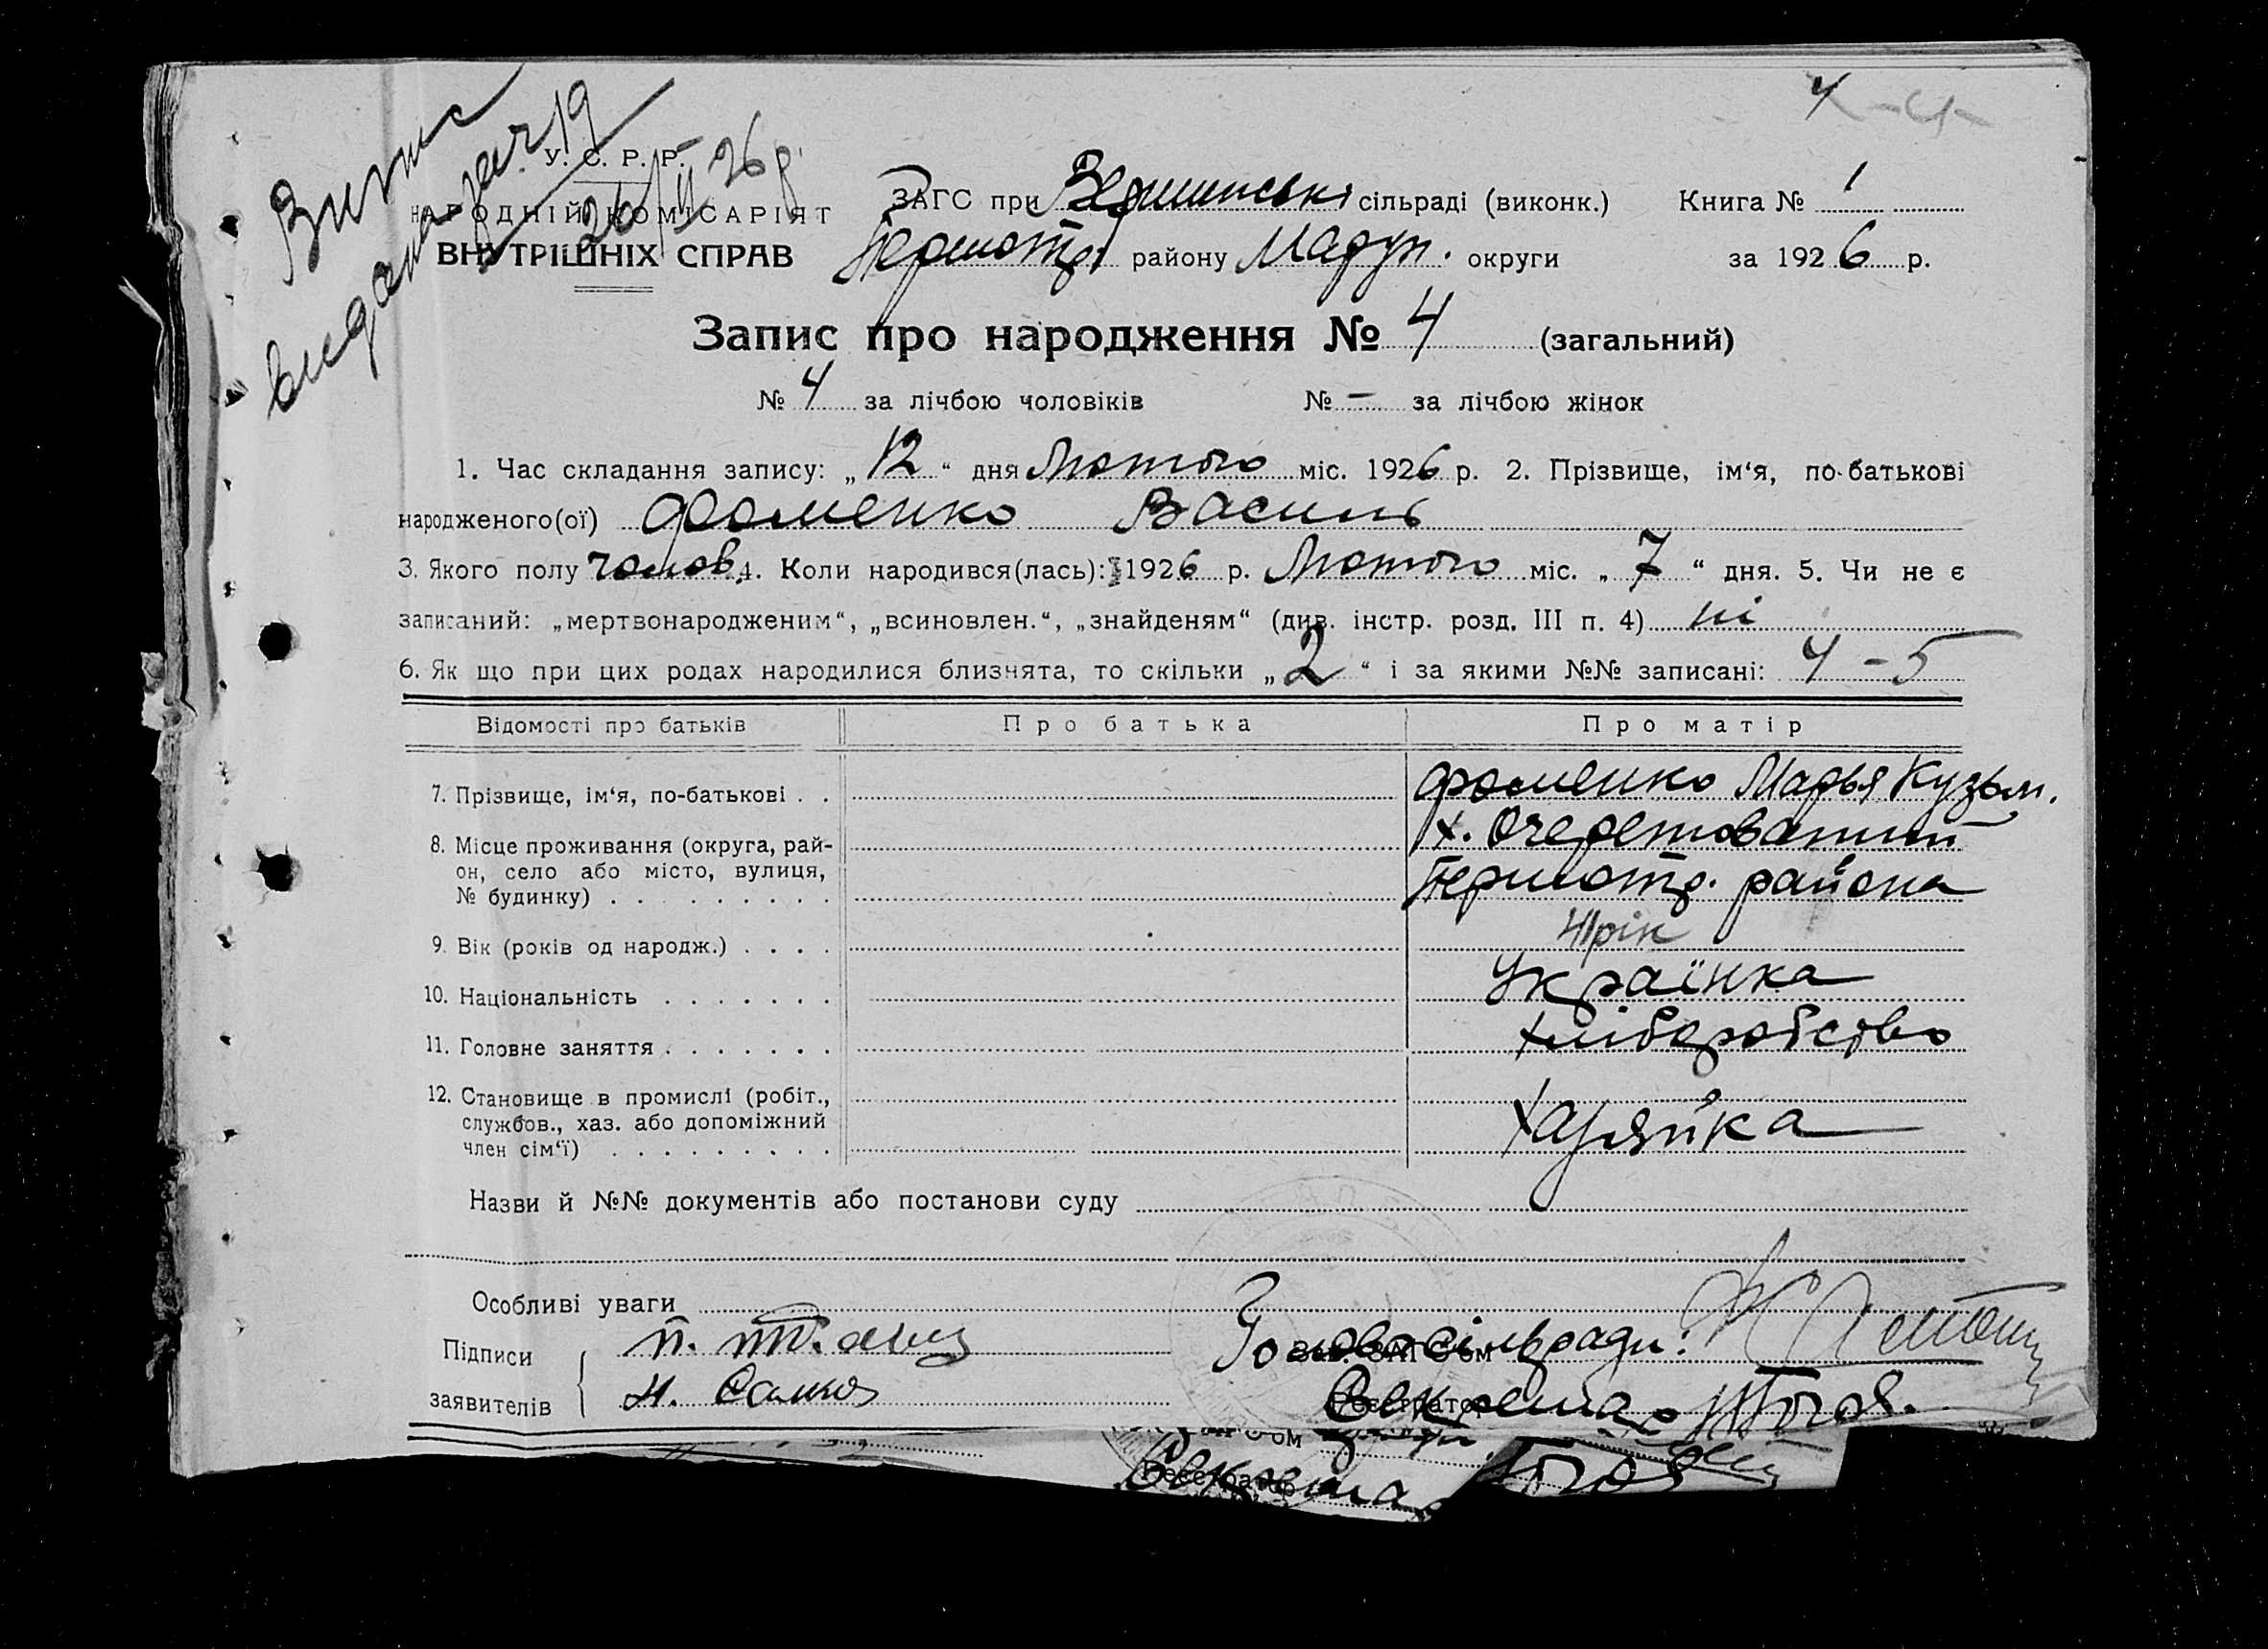 4
Випис
видана
26/II 26 р.
У. С. Р. Р.
НАРОДНІЙ КОМІСАРІЯТ
ВНУТРІШНІХ СПРАВ
ЗАГС при сільраді (виконк.) Книга № 1
Першотр району Маруп. округи за 1926 р.
Запис про народження № 4 (загальний)
№ 4 за лічбою чоловіків № – за лічбою жінок
1. Час складання запису: „12“ дня Лютого міс. 1926 р. 2. Прізвище, ім‘я, по-батькові
народженого(ої) Фоменко Василь
3. Якого полу чолов. 4. Коли народився(лась): 1926 р. Лютого міс. „7“ дня. 5. Чи не є
записаний: „мертвонародженим“, „всиновлен.“, „знайденям“ (див. інстр. розд. III п. 4) ні
6. Як що при цих родах народилися близнята, то скільки „2“ і за якими №№ записані: 4 – 5
Відомості про батьків Про батька Про матір
7. Прізвище, ім‘я, по-батькові . . Фоменко Марья Кузьм.
8. Місце проживання (округа, рай- х. Очеретоватий
он, село або місто, вулиця, Першотр. района
№ будинку) . . . . . . . . .
9. Вік (років од народж.) . . . . 41 рік
10. Національність . . . . . . . Українка
11. Головне заняття . . . . . . . хліборобство
12. Становище в промислі (робіт., хазяйка
службов., хаз. або допоміжний
член сім‘ї) . . . . . . . . .
Назви й №№ документів або постанови суду
Особливі уваги
Підписи Голова сільради:
заявителів Секретар
Секретар